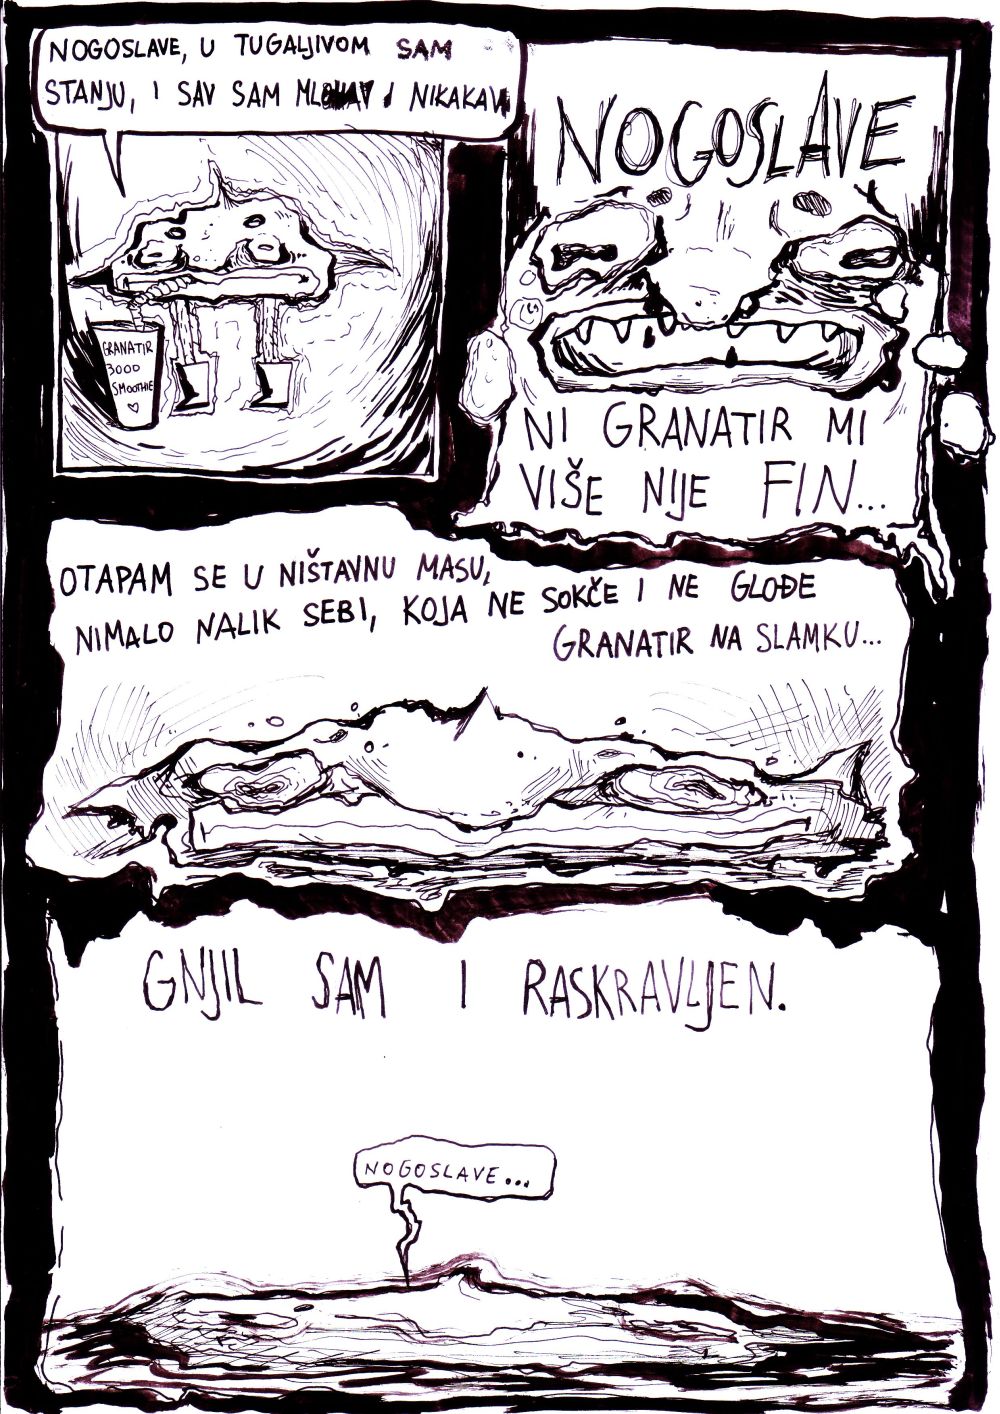 NOGOSLAVE, U TUGALJIVOM SAM
STANJU, I SAV SAM MLOHAV I NIKAKAV
GRANATIR
3000
SMOOTHIE
NOGOSLAVE
NI GRANATIR MI
VIŠE NIJE FIN...
OTAPAM SE U NIŠTAVNU MASU,
NIMALO NALIK SEBI, KOJA NE SOKČE I NE GLOĐE
GRANATIR NA SLAMKU...
GNJIL SAM I RASKRAVLJEN.
NOGOSLAVE...